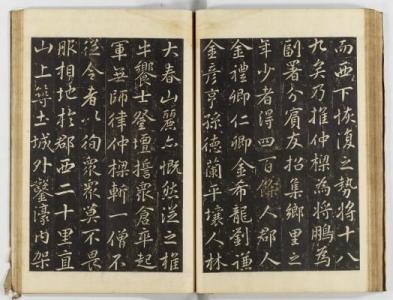 而西下恢復之勢將十八
九矣乃推仲樑為將鵬為
副署分賓友招集鄉里之
年少者得四百餘人郡人
金禮卿仁卿金希龍劉謙
金彥亨孫德蘭平壤人林
大春山麗亦慨然從之椎
牛饗士登壇誓衆倉卒起
軍無師律仲樑斬一僧不
從令者以徇衆衆莫不畏
服相地於郡西二十里直
山上築土城外鑿濠內架